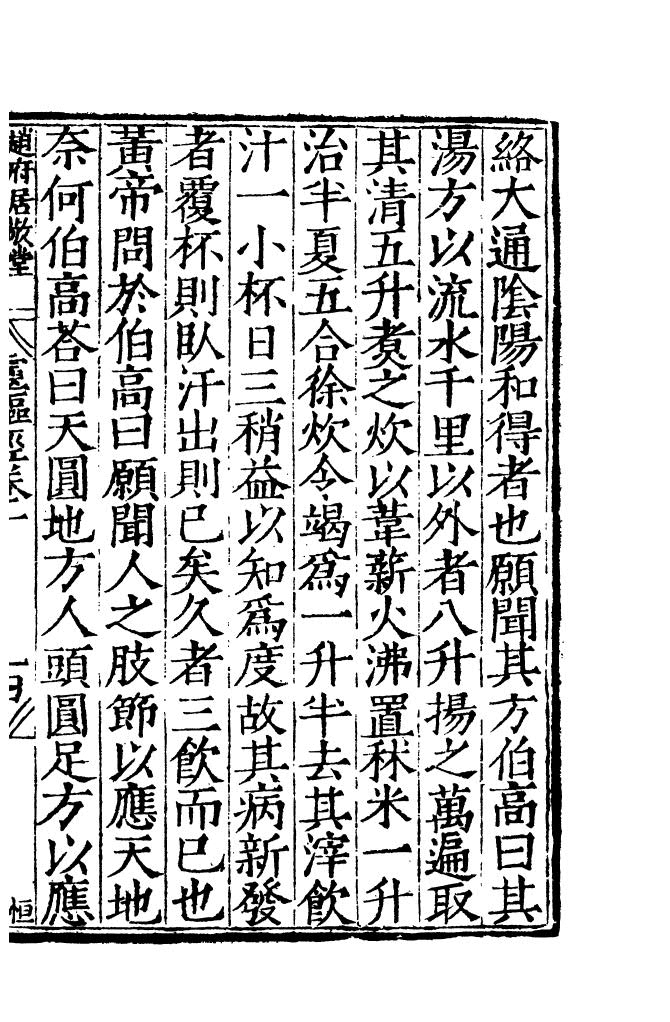 絡大通隂陽和得者也願聞其方伯高曰其
湯方以流水千里以外者八升揚之萬遍取
其清五升煑之炊以葦薪火沸置秫米一升
治半夏五合徐炊令竭爲一升半去其滓飲
汁一小杯日三稍益以知爲度故其病新發
者覆杯則臥汗出則已矣久者三飲而已也
黃帝問於伯高曰願聞人之肢節以應天地
奈何伯高荅曰天圓地方人頭圓足方以應
趙府居敬堂
靈樞經卷十
恒